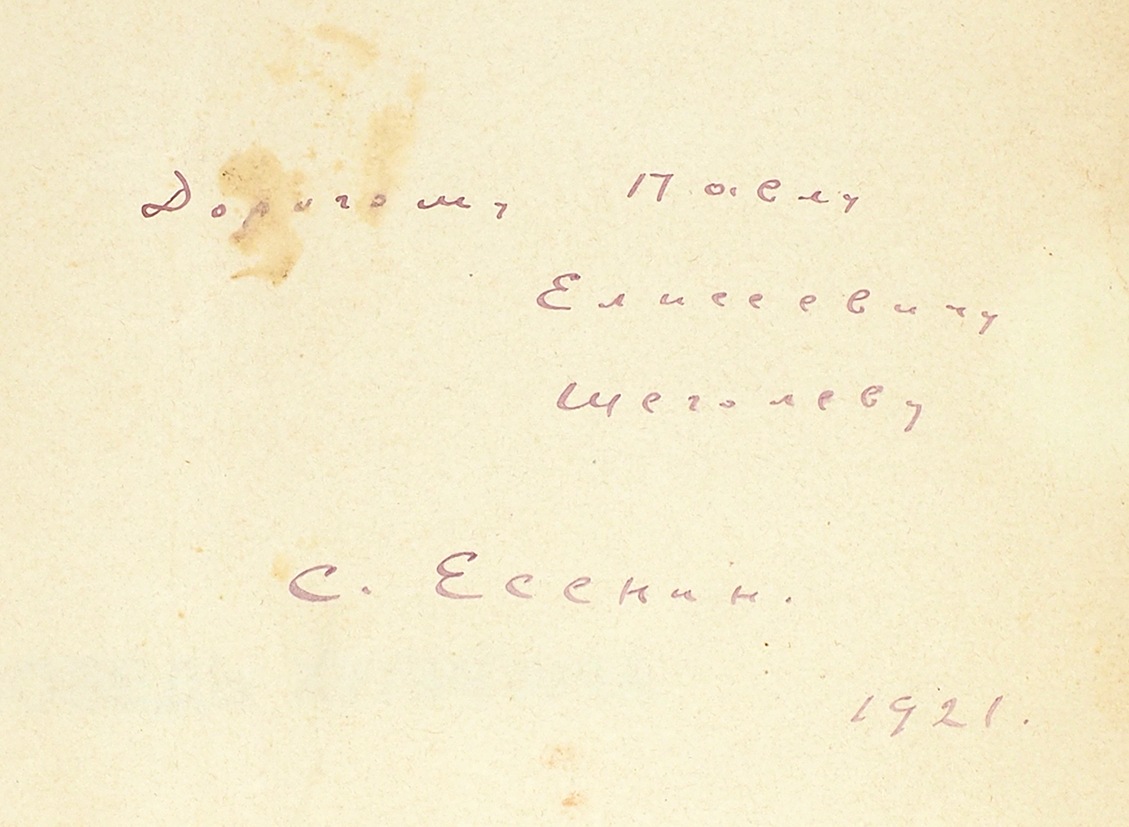 Дорогому Павлу
Елисеевичу
Щеголеву
С. Есенин.
1921.